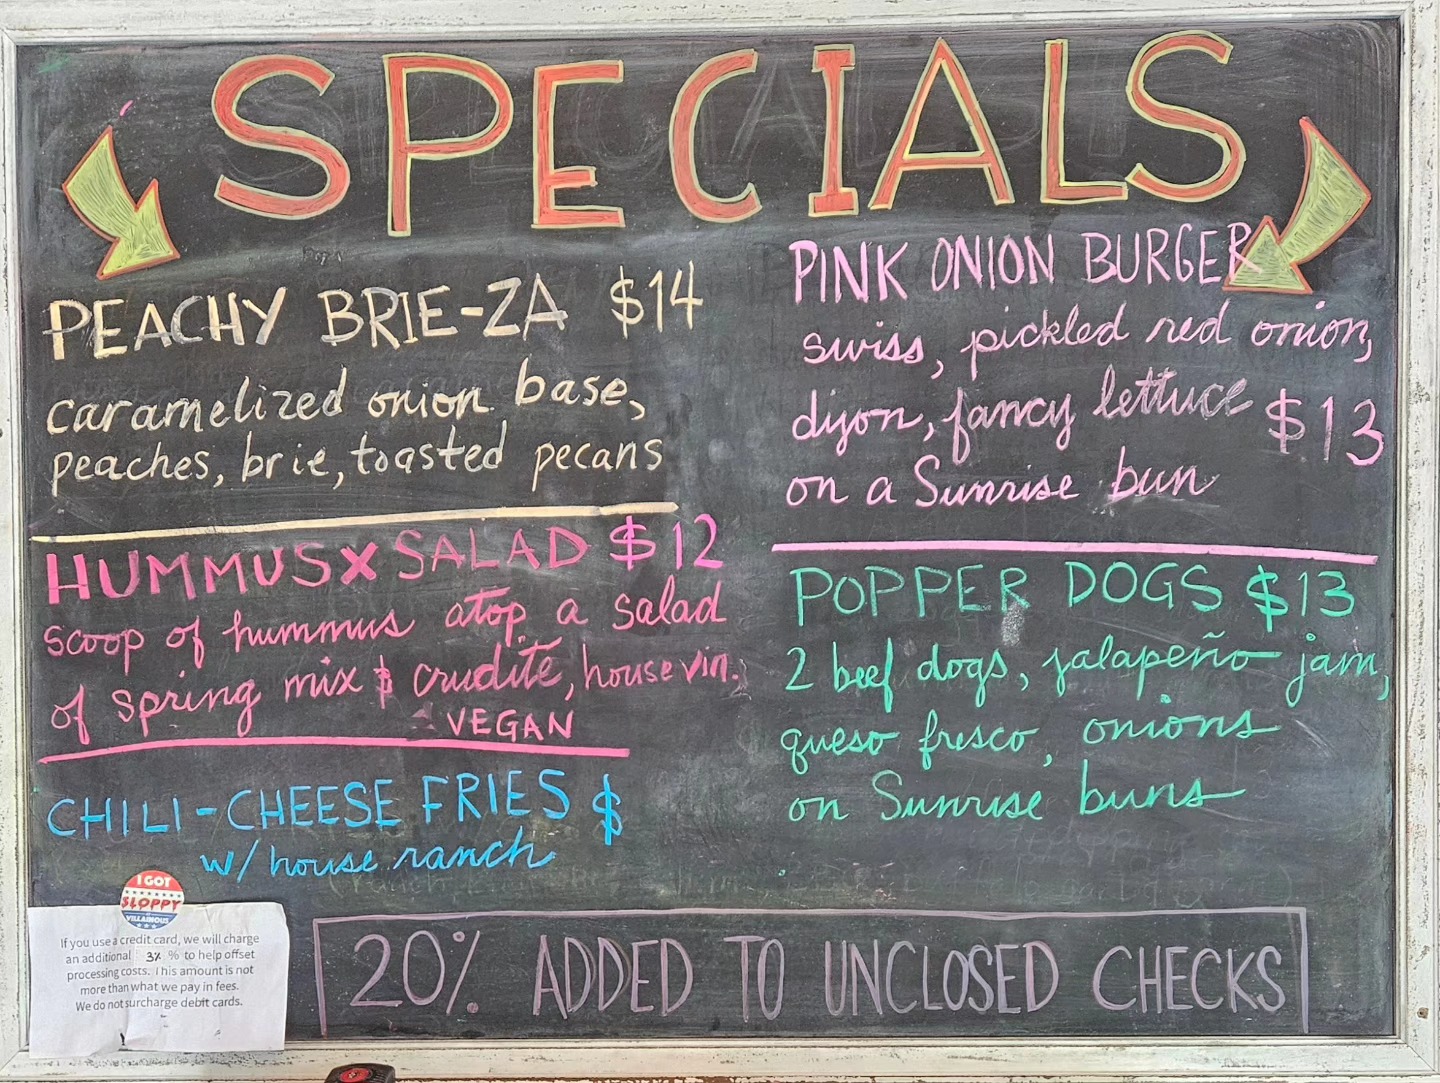 SPECIALS
PEACHY BRIE-ZA $14
caramelized onion base,
peaches, brie, toasted pecans
HUMMUS X SALAD $12
scoop of hummus atop a salad
of spring mix & crudité, house vin.
VEGAN
CHILI-CHEESE FRIES $
w/ house ranch
PINK ONION BURGER
swiss, pickled red onion,
dijon, fancy lettuce $13
on a Sunrise bun
POPPER DOGS $13
2 beef dogs, jalapeño jam,
queso fresco, onions
on Sunrise buns
20% ADDED TO UNCLOSED CHECKS
I GOT
SLOPPY
AT
VILLAINOUS
If you use a credit card, we will charge
an additional 3% % to help offset
processing costs. This amount is not
more than what we pay in fees.
We do not surcharge debit cards.